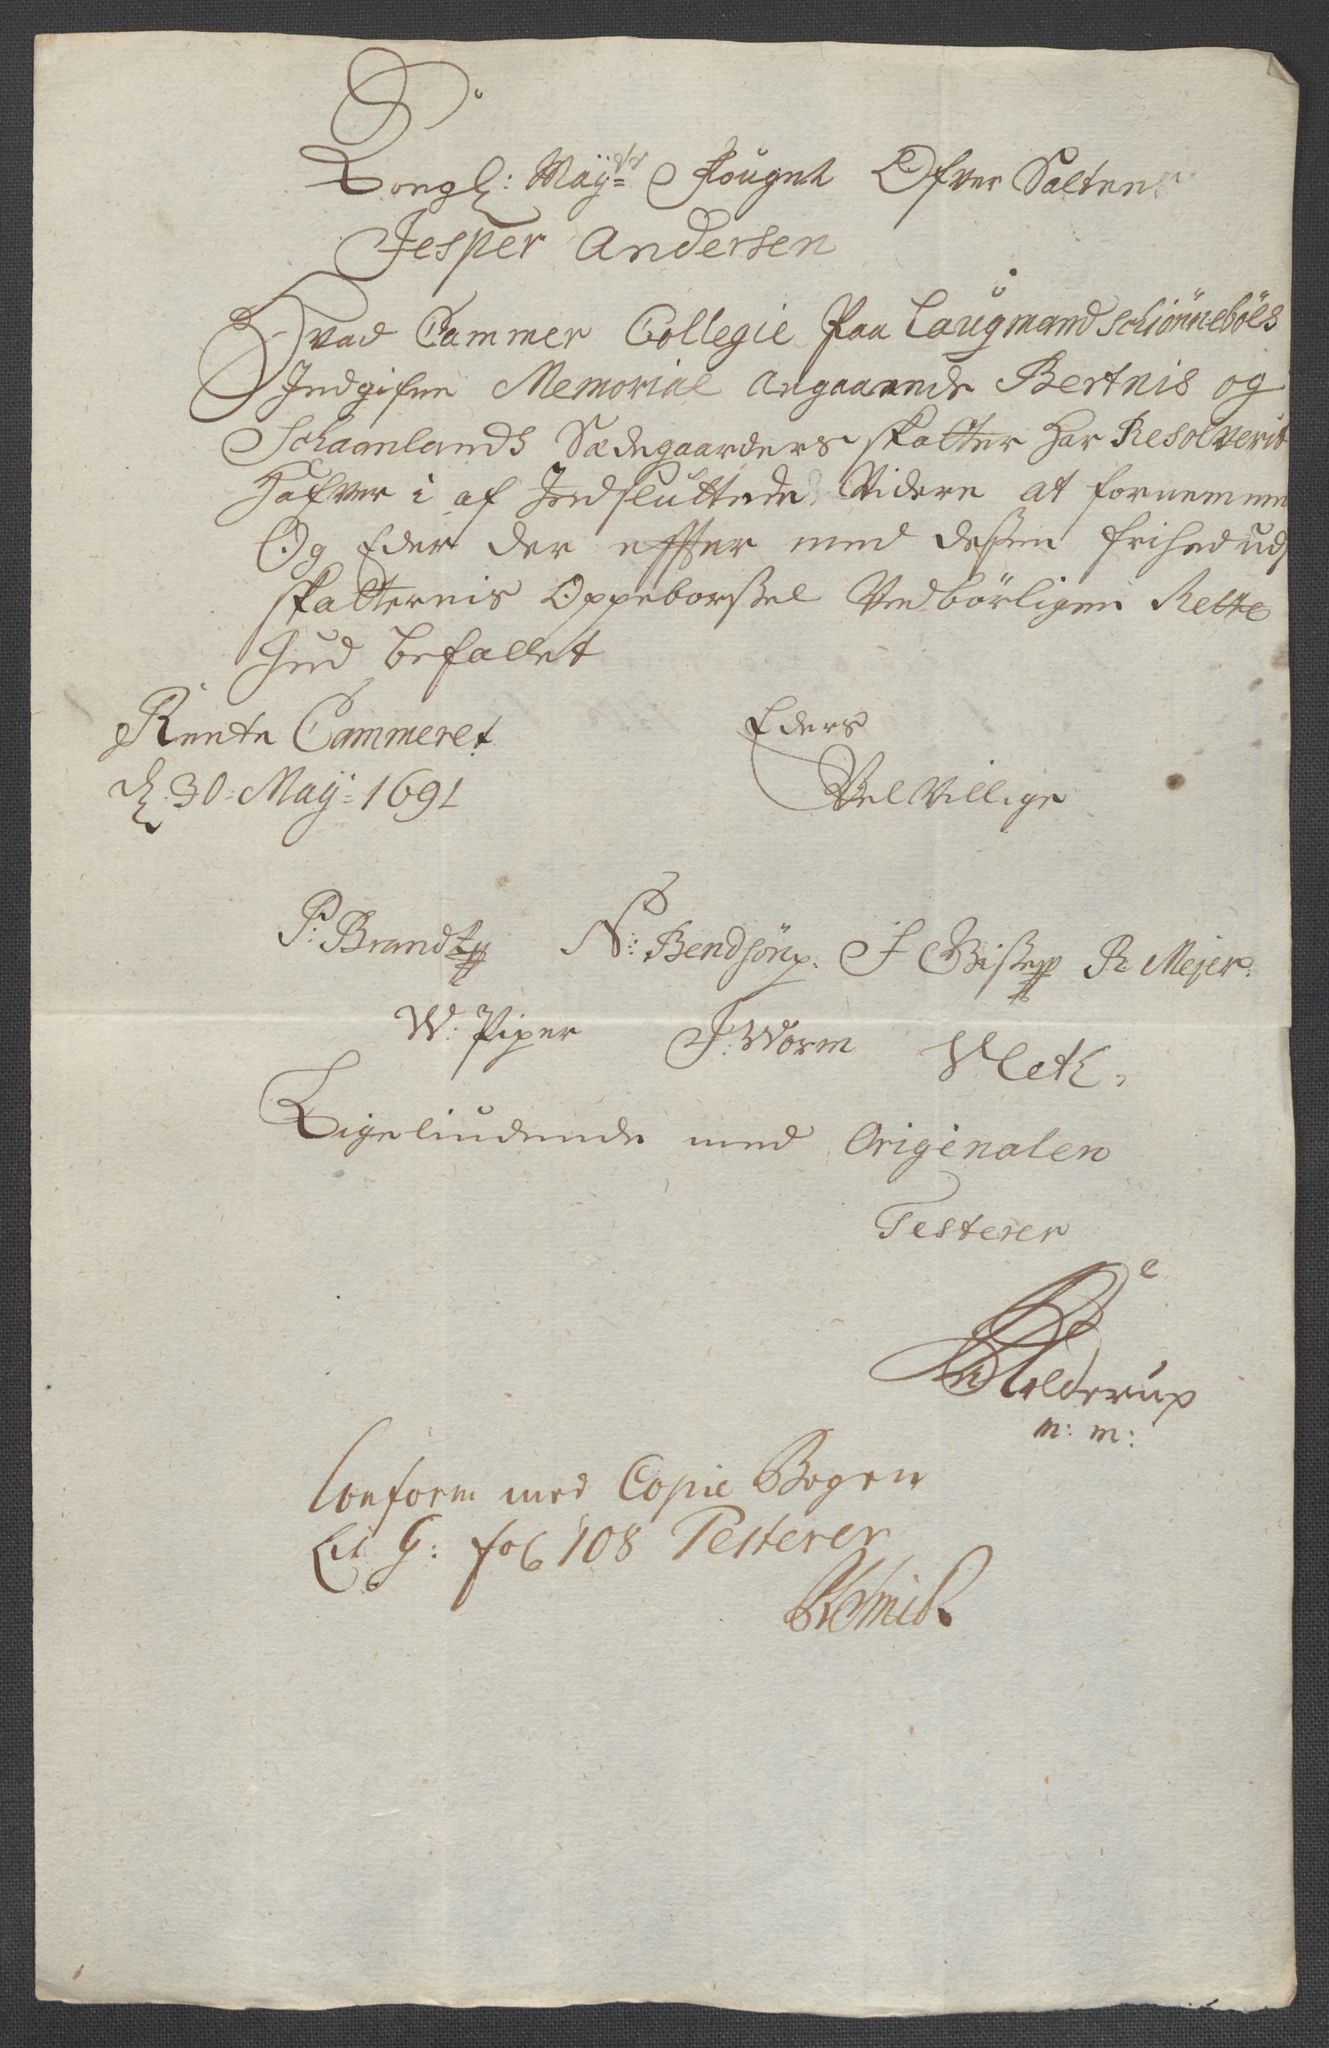 Kongl: Maÿ:ts Fougut Ofver Salten
Jesper Andersen
Hvad Cammer Collegie Paa Laugmand Schiönnebôls
Indgifne Memorial Angaaende Bertnis og
Schaanlands Sædegaarders skatter har Resolverit
hafver i af Indsluttede Videre at fornemme
Og Eder der effter med deßen frihed ud
skatternis Oppeborßel Vedbörligen Rette
hud befallet
Rente Cammeret
d. 30: Maÿ: 1691
Eders
VelVillige
P: Brandt N: Bendsön J Wiße R Mejer.
W: Piper J: Worm
Ligeliudende med Originalen
Testerer
Tolderup
m: m:
Conform med Copie Bogen
Lit G: fol 108 Testerer